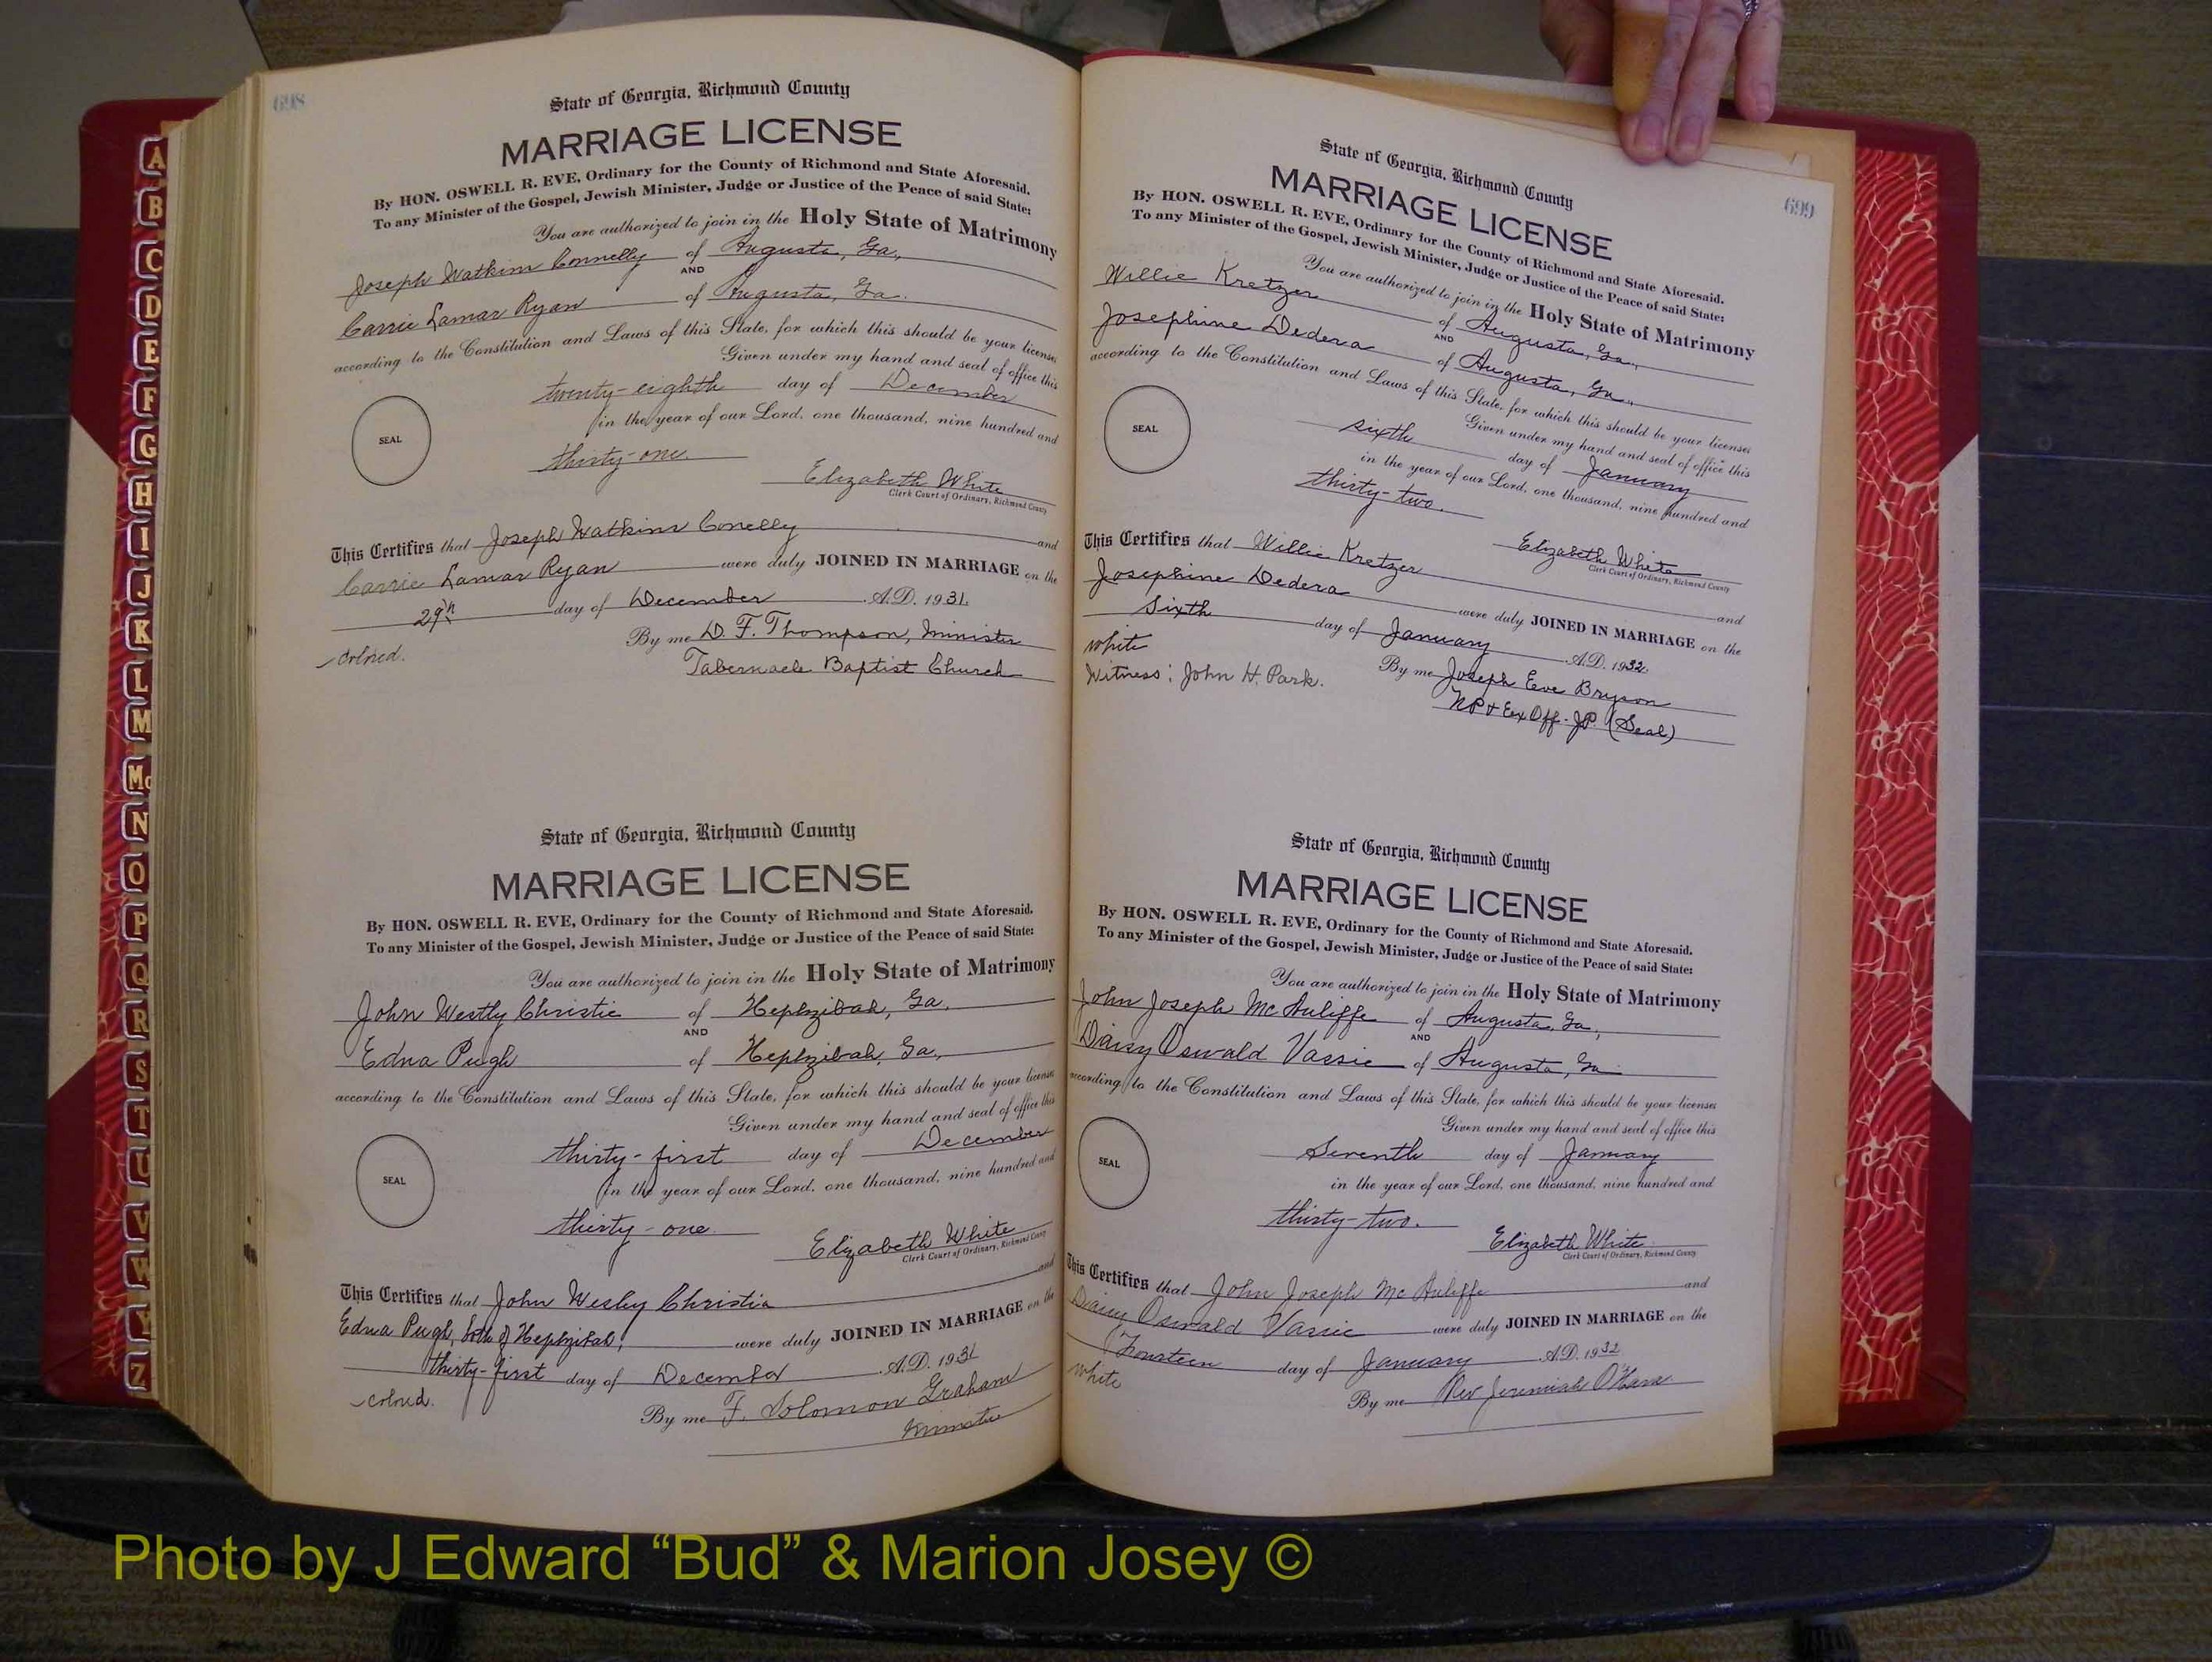 A
B
C
D
E
F
G
H
I
J
K
L
M
Mc
N
O
P
Q
R
S
T
U
V
W
Y
Z
698
State of Georgia, Richmond County
MARRIAGE LICENSE
By HON. OSWELL R. EVE, Ordinary for the County of Richmond and State Aforesaid.
To any Minister of the Gospel, Jewish Minister, Judge or Justice of the Peace of said State:
You are authorized to join in the Holy State of Matrimony
Joseph Watkins Connelly of Augusta, Ga.,
AND
Carrie Lamar Ryan of Augusta, Ga.
according to the Constitution and Laws of this State, for which this should be your license
Given under my hand and seal of office this
twenty-eighth day of December
in the year of our Lord, one thousand, nine hundred and
SEAL
thirty-one.
Elizabeth White
Clerk Court of Ordinary, Richmond County
This Certifies that Joseph Watkins Conelly and
Carrie Lamar Ryan were duly JOINED IN MARRIAGE on the
29th day of December A.D. 1931.
By me D. F. Thompson, Minister
colored.
Tabernacle Baptist Church
State of Georgia, Richmond County
MARRIAGE LICENSE
By HON. OSWELL R. EVE, Ordinary for the County of Richmond and State Aforesaid.
To any Minister of the Gospel, Jewish Minister, Judge or Justice of the Peace of said State:
You are authorized to join in the Holy State of Matrimony
John Westly Christie of Hephzibah, Ga.
AND
Edna Pugh of Hephzibah, Ga.,
according to the Constitution and Laws of this State, for which this should be your license
Given under my hand and seal of office this
thirty-first day of December
in the year of our Lord, one thousand, nine hundred and
SEAL
thirty-one.
Elizabeth White
Clerk Court of Ordinary, Richmond County
This Certifies that John Wesley Christia and
Edna Pugh, both of Hephzibah, were duly JOINED IN MARRIAGE on the
thirty-first day of December A.D. 1931
colored.
By me F. Solomon Graham
Minister
699
State of Georgia, Richmond County
MARRIAGE LICENSE
By HON. OSWELL R. EVE, Ordinary for the County of Richmond and State Aforesaid.
To any Minister of the Gospel, Jewish Minister, Judge or Justice of the Peace of said State:
You are authorized to join in the Holy State of Matrimony
Willie Kretzer of Augusta, Ga.,
AND
Josephine Dedera of Augusta, Ga.,
according to the Constitution and Laws of this State, for which this should be your license
Given under my hand and seal of office this
sixth day of January
in the year of our Lord, one thousand, nine hundred and
SEAL
thirty-two.
Elizabeth White
Clerk Court of Ordinary, Richmond County
This Certifies that Willie Kretzer and
Josephine Dedera were duly JOINED IN MARRIAGE on the
Sixth day of January A.D. 1932.
white
By me Joseph Eve Bryson
Witness: John H. Park.
NP & Ex Off. JP. (Seal)
State of Georgia, Richmond County
MARRIAGE LICENSE
By HON. OSWELL R. EVE, Ordinary for the County of Richmond and State Aforesaid.
To any Minister of the Gospel, Jewish Minister, Judge or Justice of the Peace of said State:
You are authorized to join in the Holy State of Matrimony
John Joseph McAuliffe of Augusta, Ga.,
AND
Daisy Oswald Vassie of Augusta, Ga
according to the Constitution and Laws of this State, for which this should be your license
Given under my hand and seal of office this
Seventh day of January
in the year of our Lord, one thousand, nine hundred and
SEAL
thirty-two.
Elizabeth White
Clerk Court of Ordinary, Richmond County
This Certifies that John Joseph McAuliffe and
Daisy Oswald Vassie were duly JOINED IN MARRIAGE on the
Fourteen day of January A.D. 1932
white
By me Rev Jeremiah O'Hara
Photo by J Edward “Bud” & Marion Josey ©